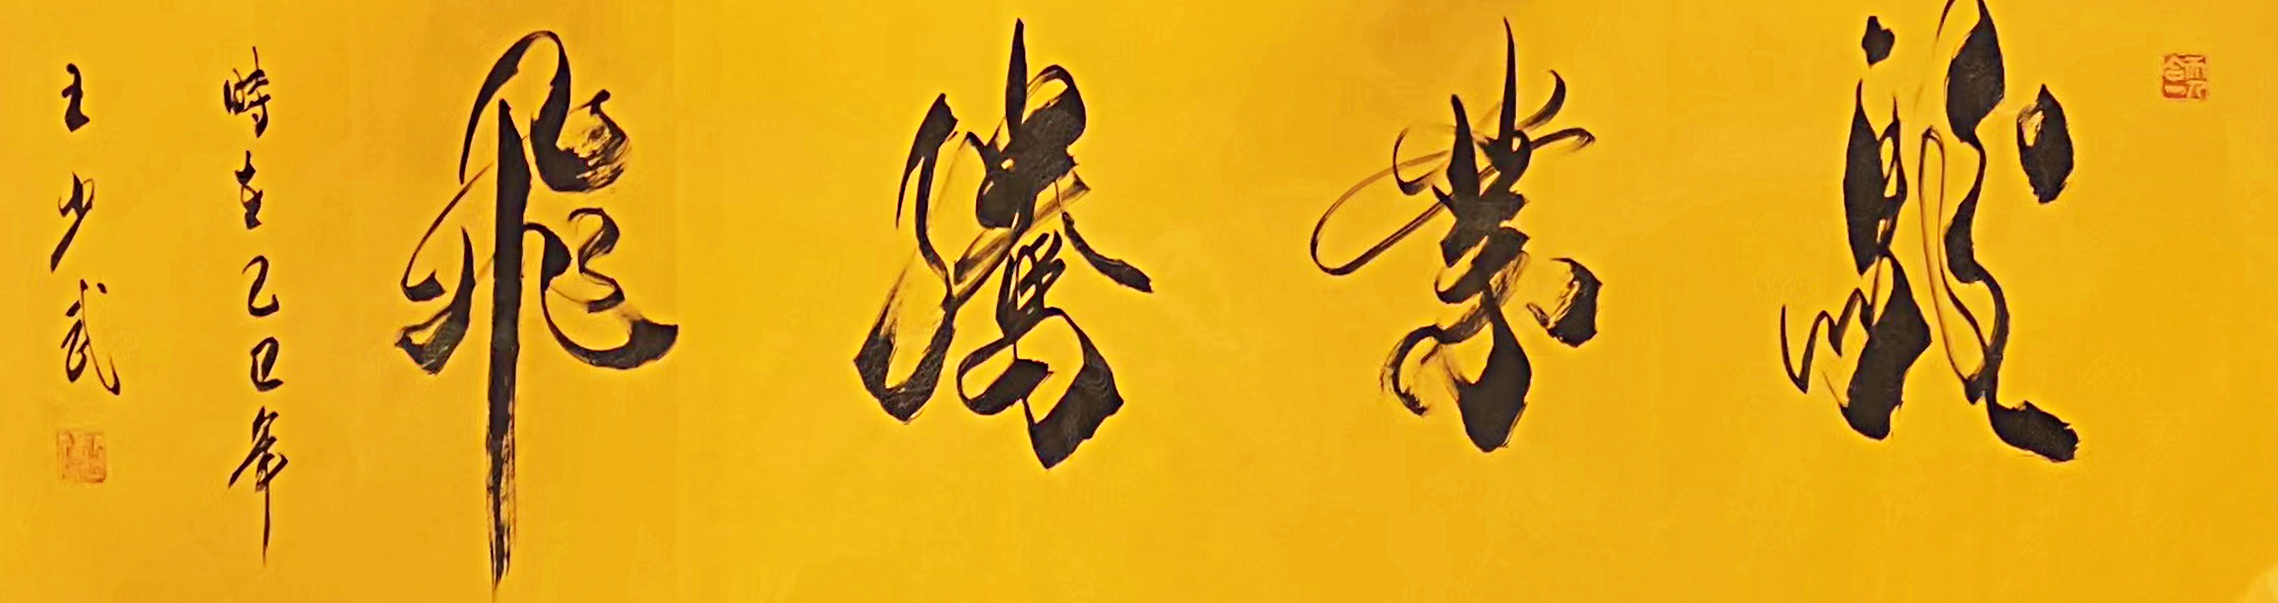 骏業騰飛
時在乙巳年
王少武